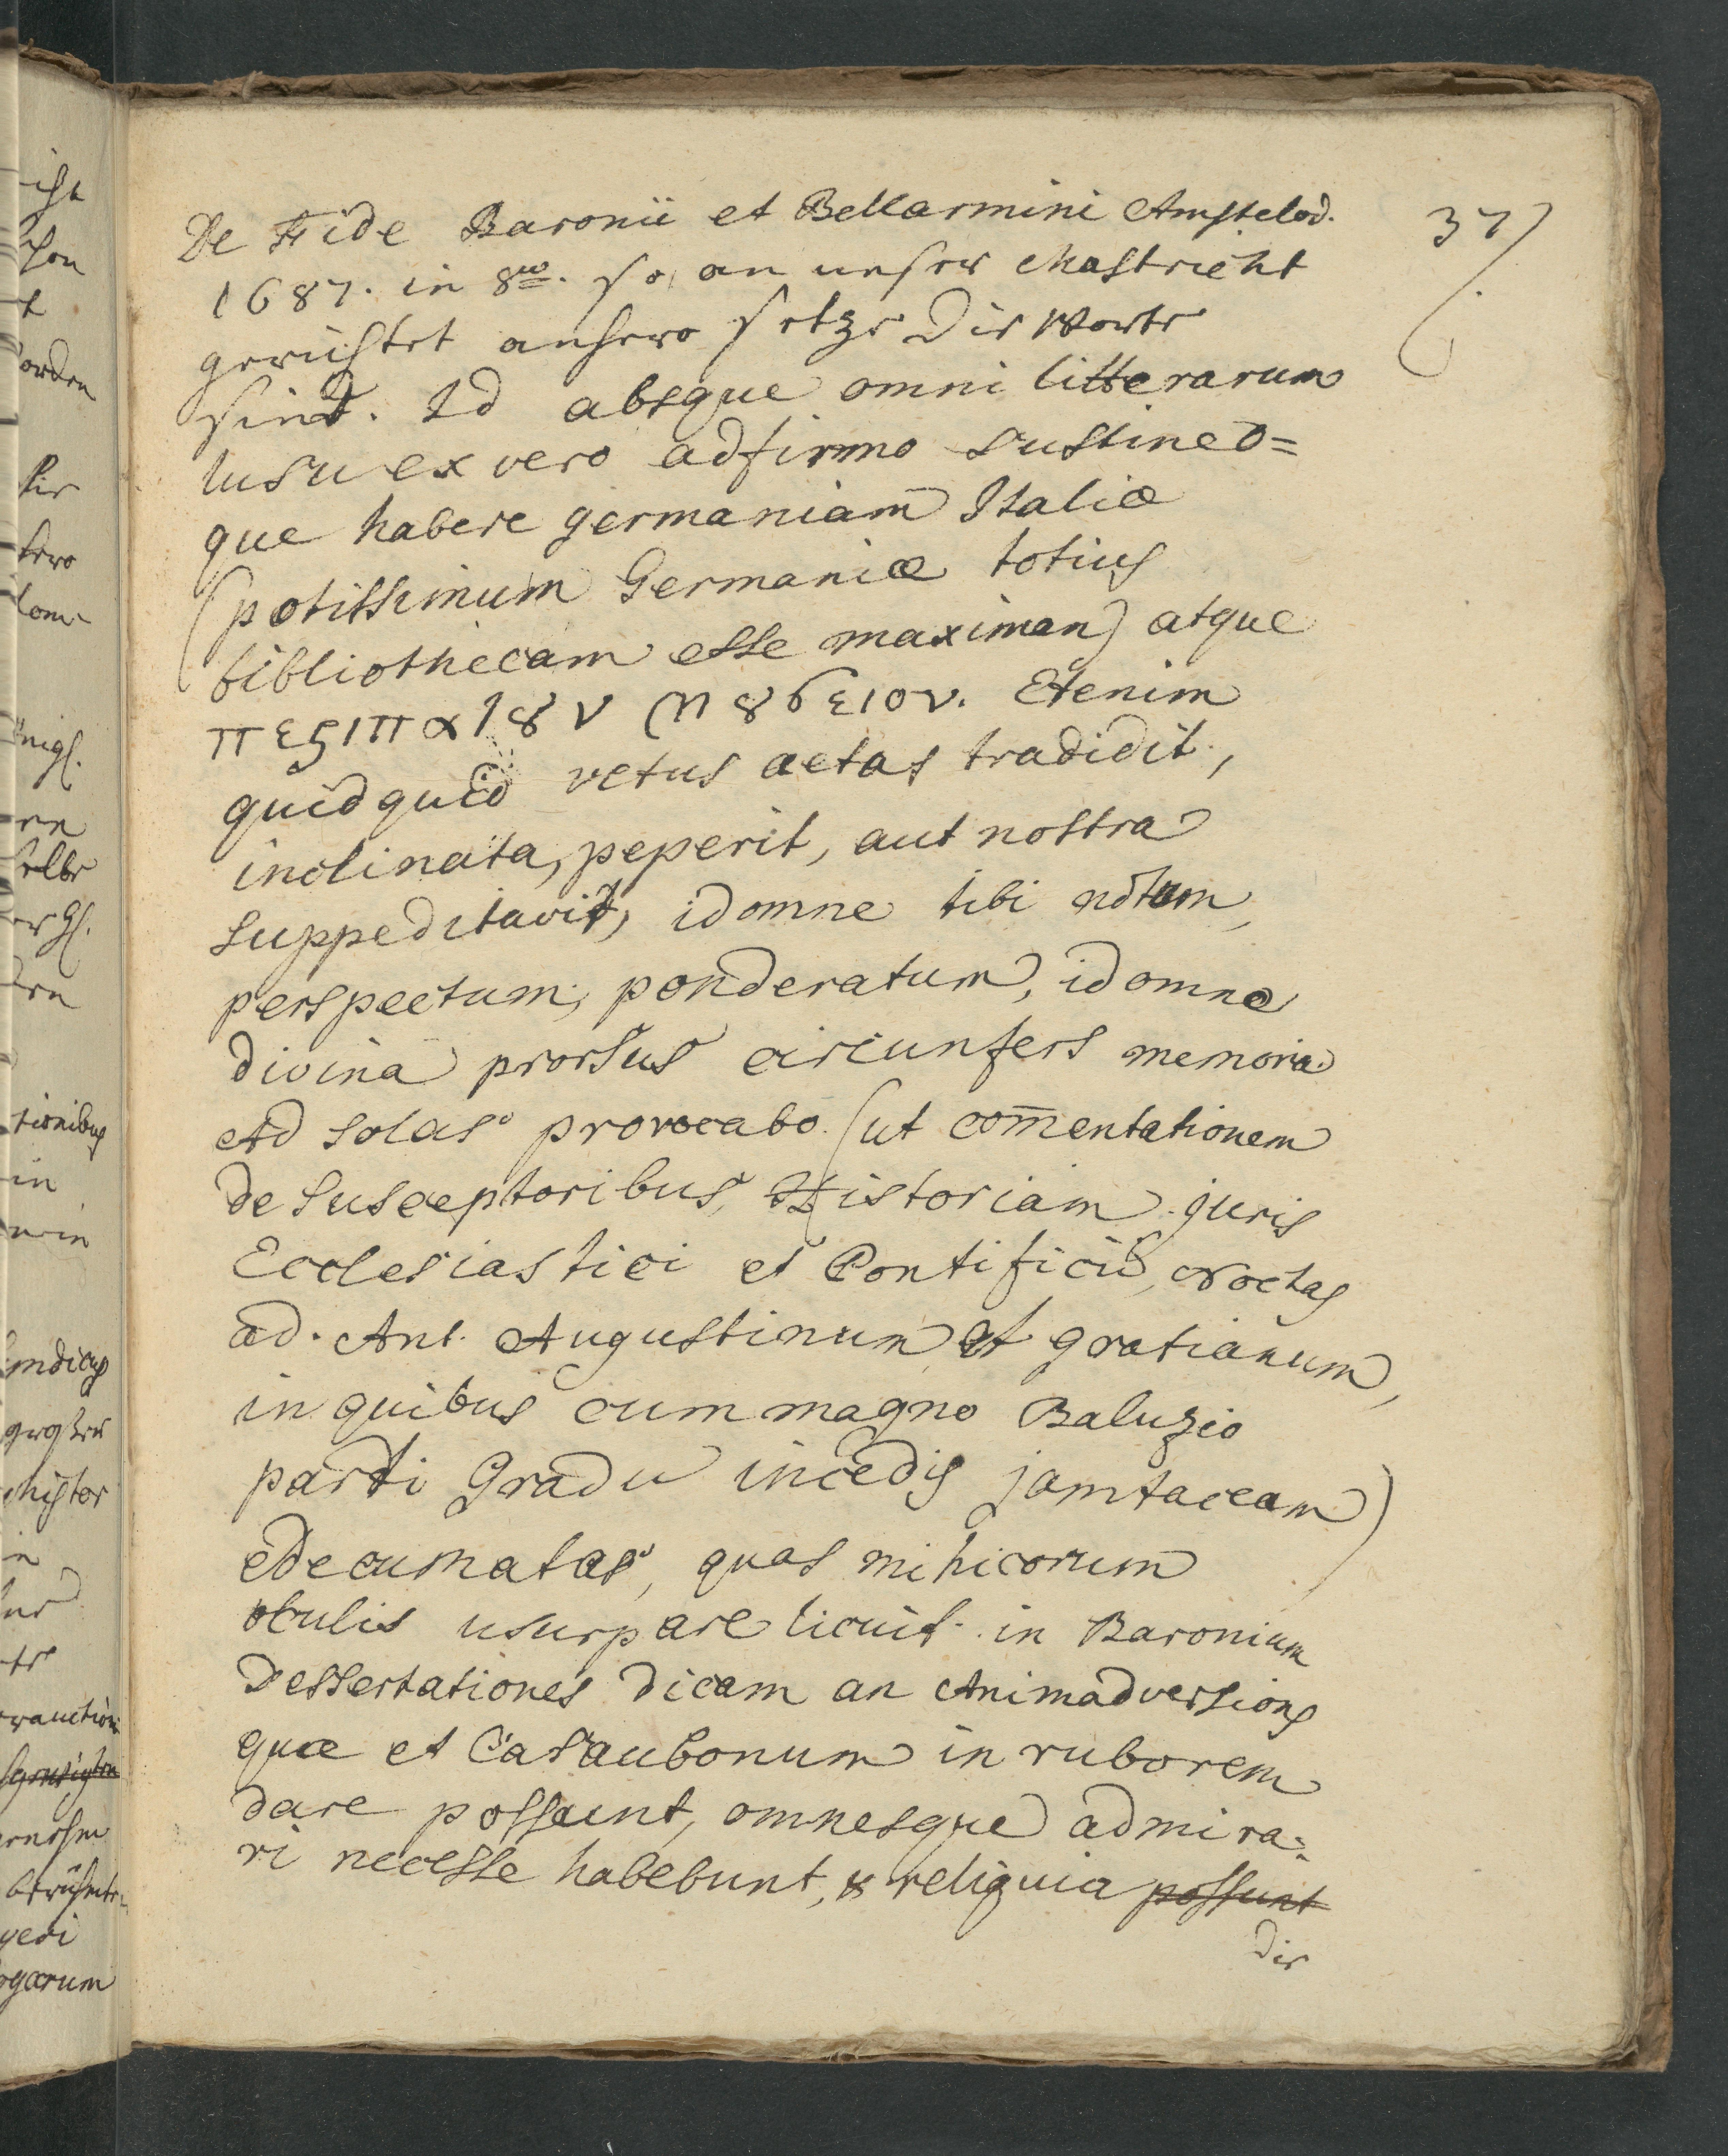 De Fide Baronii et Bellarmini Amstelod.
37
1687. in 8vo. so an unsern Mastricht
gerichtet anhero setze die Worte
sind. Id absque omni litterarum
lusu ex vero adfirmo sustineo=
que habere germaniam Italiæ
(potissimum Germaniæ totius
bibliothecam esse maximan) atque
περιπαΊȣν Μȣσειον. Etenim
quidquid vetus aetas tradidit,
inclinata, peperit, aut nostra
suppeditavit, id omne tibi notum,
perspectum, ponderatum, id omne
divina prorsus circunfers memoria.
Ad solas provocabo (ut com̄entationem
de susceptoribus, Historiam juris
Ecclesiastici et Pontificii, Noctas
ad. Ant. Augustinum et gratianum,
in quibus cum magno Baluzio
parti Gradu incedis jamtaceam)
edecumatas, quas mihicorum
oculis usurpare licuit in Baronium
Dessertationes dicam an Animadversiones
quæ et Casaubonum in ruborem
dare possunt, omnesque admira=
ri necesse habebunt, & reliquia possunt
die
ist
orden
hir
tionibus
in
gerichten
histor
in
berühmte
gedi